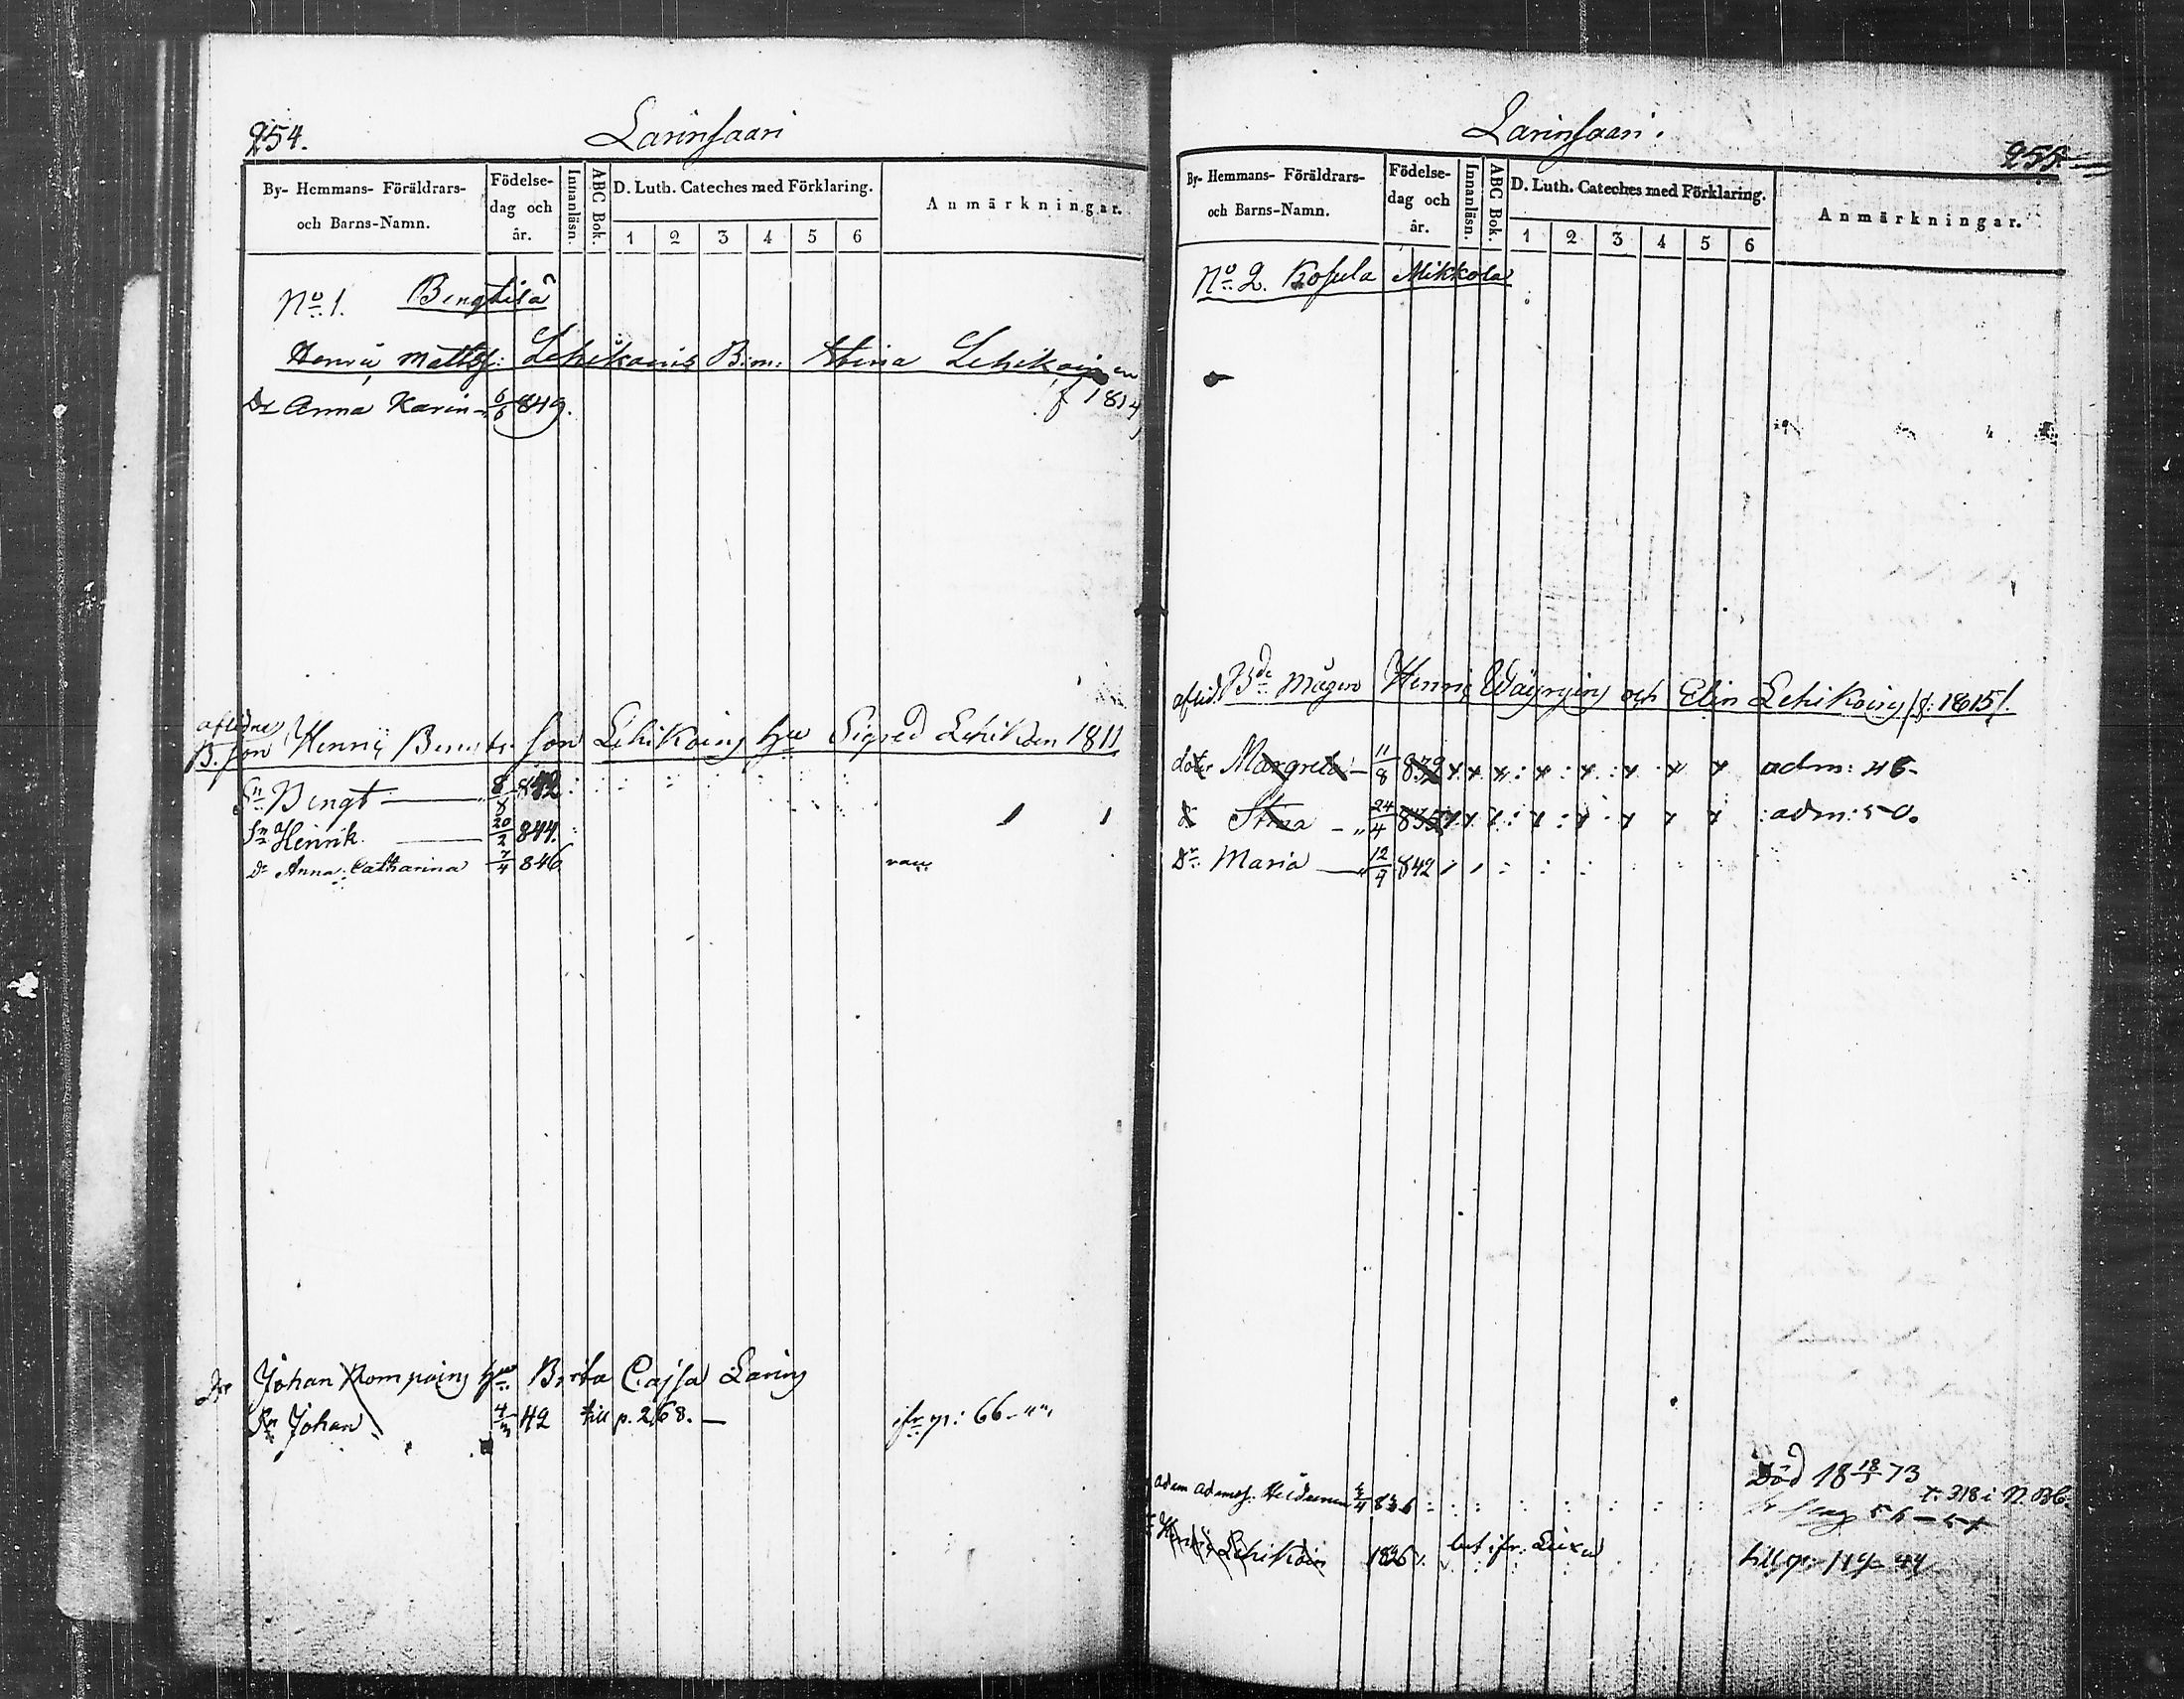 254.
Larinsaari
By- Hemmans- Föräldrars-
och Barns-Namn.
Födelse-
dag och
år.
Innanläsn.
ABC Bok.
D. Luth. Cateches med Förklaring.
1 2 3 4 5 6
Anmärkningar.
No 1. Bengtilä
Henric Mattss: Lehikoins B.m: Stina Lehikoinen
f 1814
Dr Anna Karin 6/6 849.
aflidne
B. son Henric Bengts son Lehikoing hu Sigred Lehikoin 1811
Sn Bengt 8/8 842
Sn Henrik 20/2 844.
Dr Anna Catharina 7/4 846
Johan Romping hu Brita Cajsa Laring
Sn Johan 4/3 42 till p. 268. ifr p: 66
Larinsaari.
255.
By- Hemmans- Föräldrars-
och Barns-Namn.
Födelse-
dag och
år.
Innanläsn.
ABC Bok.
D. Luth. Cateches med Förklaring.
1 2 3 4 5 6
Anmärkningar.
No 2. Kosula Mikkola
aflid. Bde Mågen Henric Wäyrying och Elin Lehikoing /f: 1815/.
doter Margreta 11/8 832 adm: 48.
d Stina 24/4 835 adm: 50.
Dr Maria 12/9 842
Död 18 18/1 73
Adam Adamss. 836 t. 318 i N. Bb.
Lehikoin 1826. till p. 119